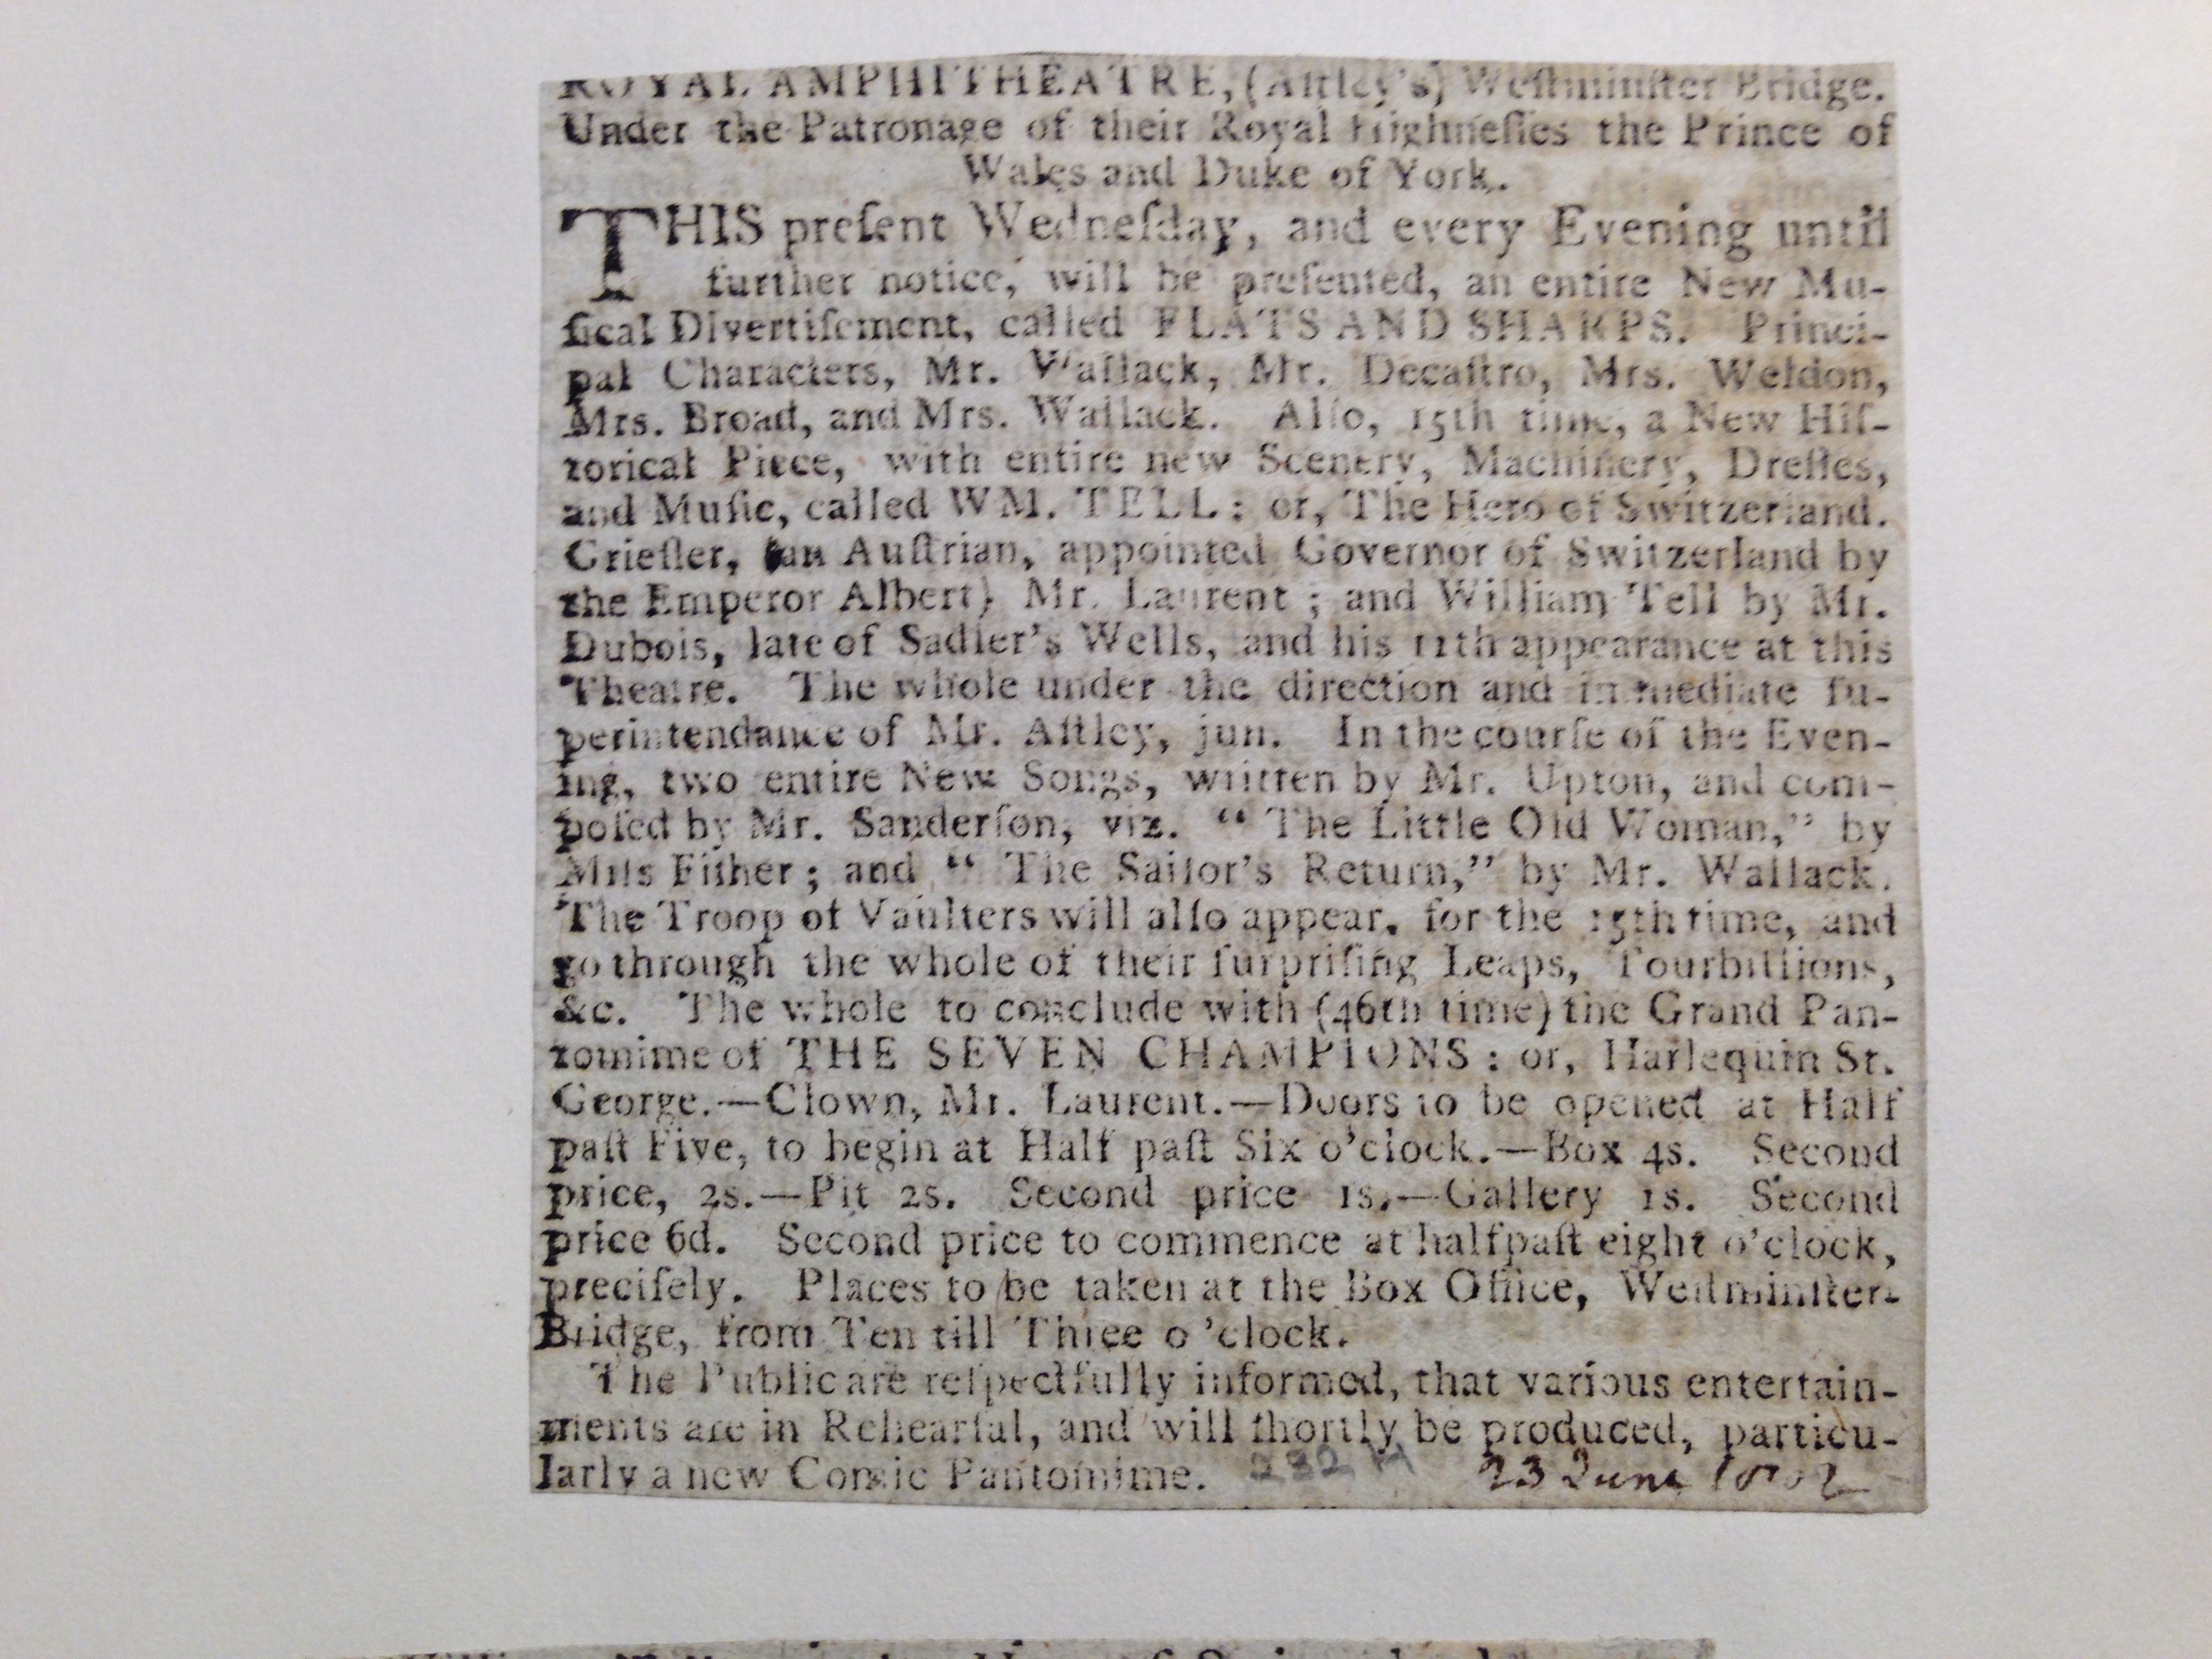 ROYAL AMPHITHEATRE, (Aſtley's) Weſtminſter Bridge.
Under the Patronage of their Royal Highneſſes the Prince of
Wales and Duke of York.
THIS preſent Wedneſday, and every Evening until
further notice, will be preſented, an entire New Mu-
ſical Divertiſement, called FLATS AND SHARPS. Princi-
pal Characters, Mr. Wallack, Mr. Decaſtro, Mrs. Weldon,
Mrs. Broad, and Mrs. Wallack. Alſo, 15th time, a New Hiſ-
torical Piece, with entire new Scenery, Machinery, Dreſſes,
and Muſic, called WM. TELL: or, The Hero of Switzerland.
Grieſler, (an Auſtrian, appointed Governor of Switzerland by
the Emperor Albert) Mr. Laurent; and William Tell by Mr.
Dubois, late of Sadler's Wells, and his 11th appearance at this
Theatre. The whole under the direction and immediate ſu-
perintendance of Mr. Aſtley, jun. In the courſe of the Even-
ing, two entire New Songs, written by Mr. Upton, and com-
poſed by Mr. Sanderſon, viz. "The Little Old Woman," by
Miſs Fiſher; and "The Sailor's Return," by Mr. Wallack.
The Troop of Vaulters will alſo appear, for the 15th time, and
go through the whole of their ſurpriſing Leaps, Tourbillions,
&c. The whole to conclude with (46th time) the Grand Pan-
tomime of THE SEVEN CHAMPIONS: or, Harlequin St.
George.—Clown, Mr. Laurent.—Doors to be opened at Half
paſt Five, to begin at Half paſt Six o'clock.—Box 4s. Second
price, 2s.—Pit 2s. Second price 1s.—Gallery 1s. Second
price 6d. Second price to commence at halfpaſt eight o'clock,
preciſely. Places to be taken at the Box Office, Weſtminſter-
Bridge, from Ten till Three o'clock.
The Public are reſpectfully informed, that various entertain-
ments are in Rehearſal, and will ſhortly be produced, particu-
larly a new Comic Pantomime. 23 June 1802